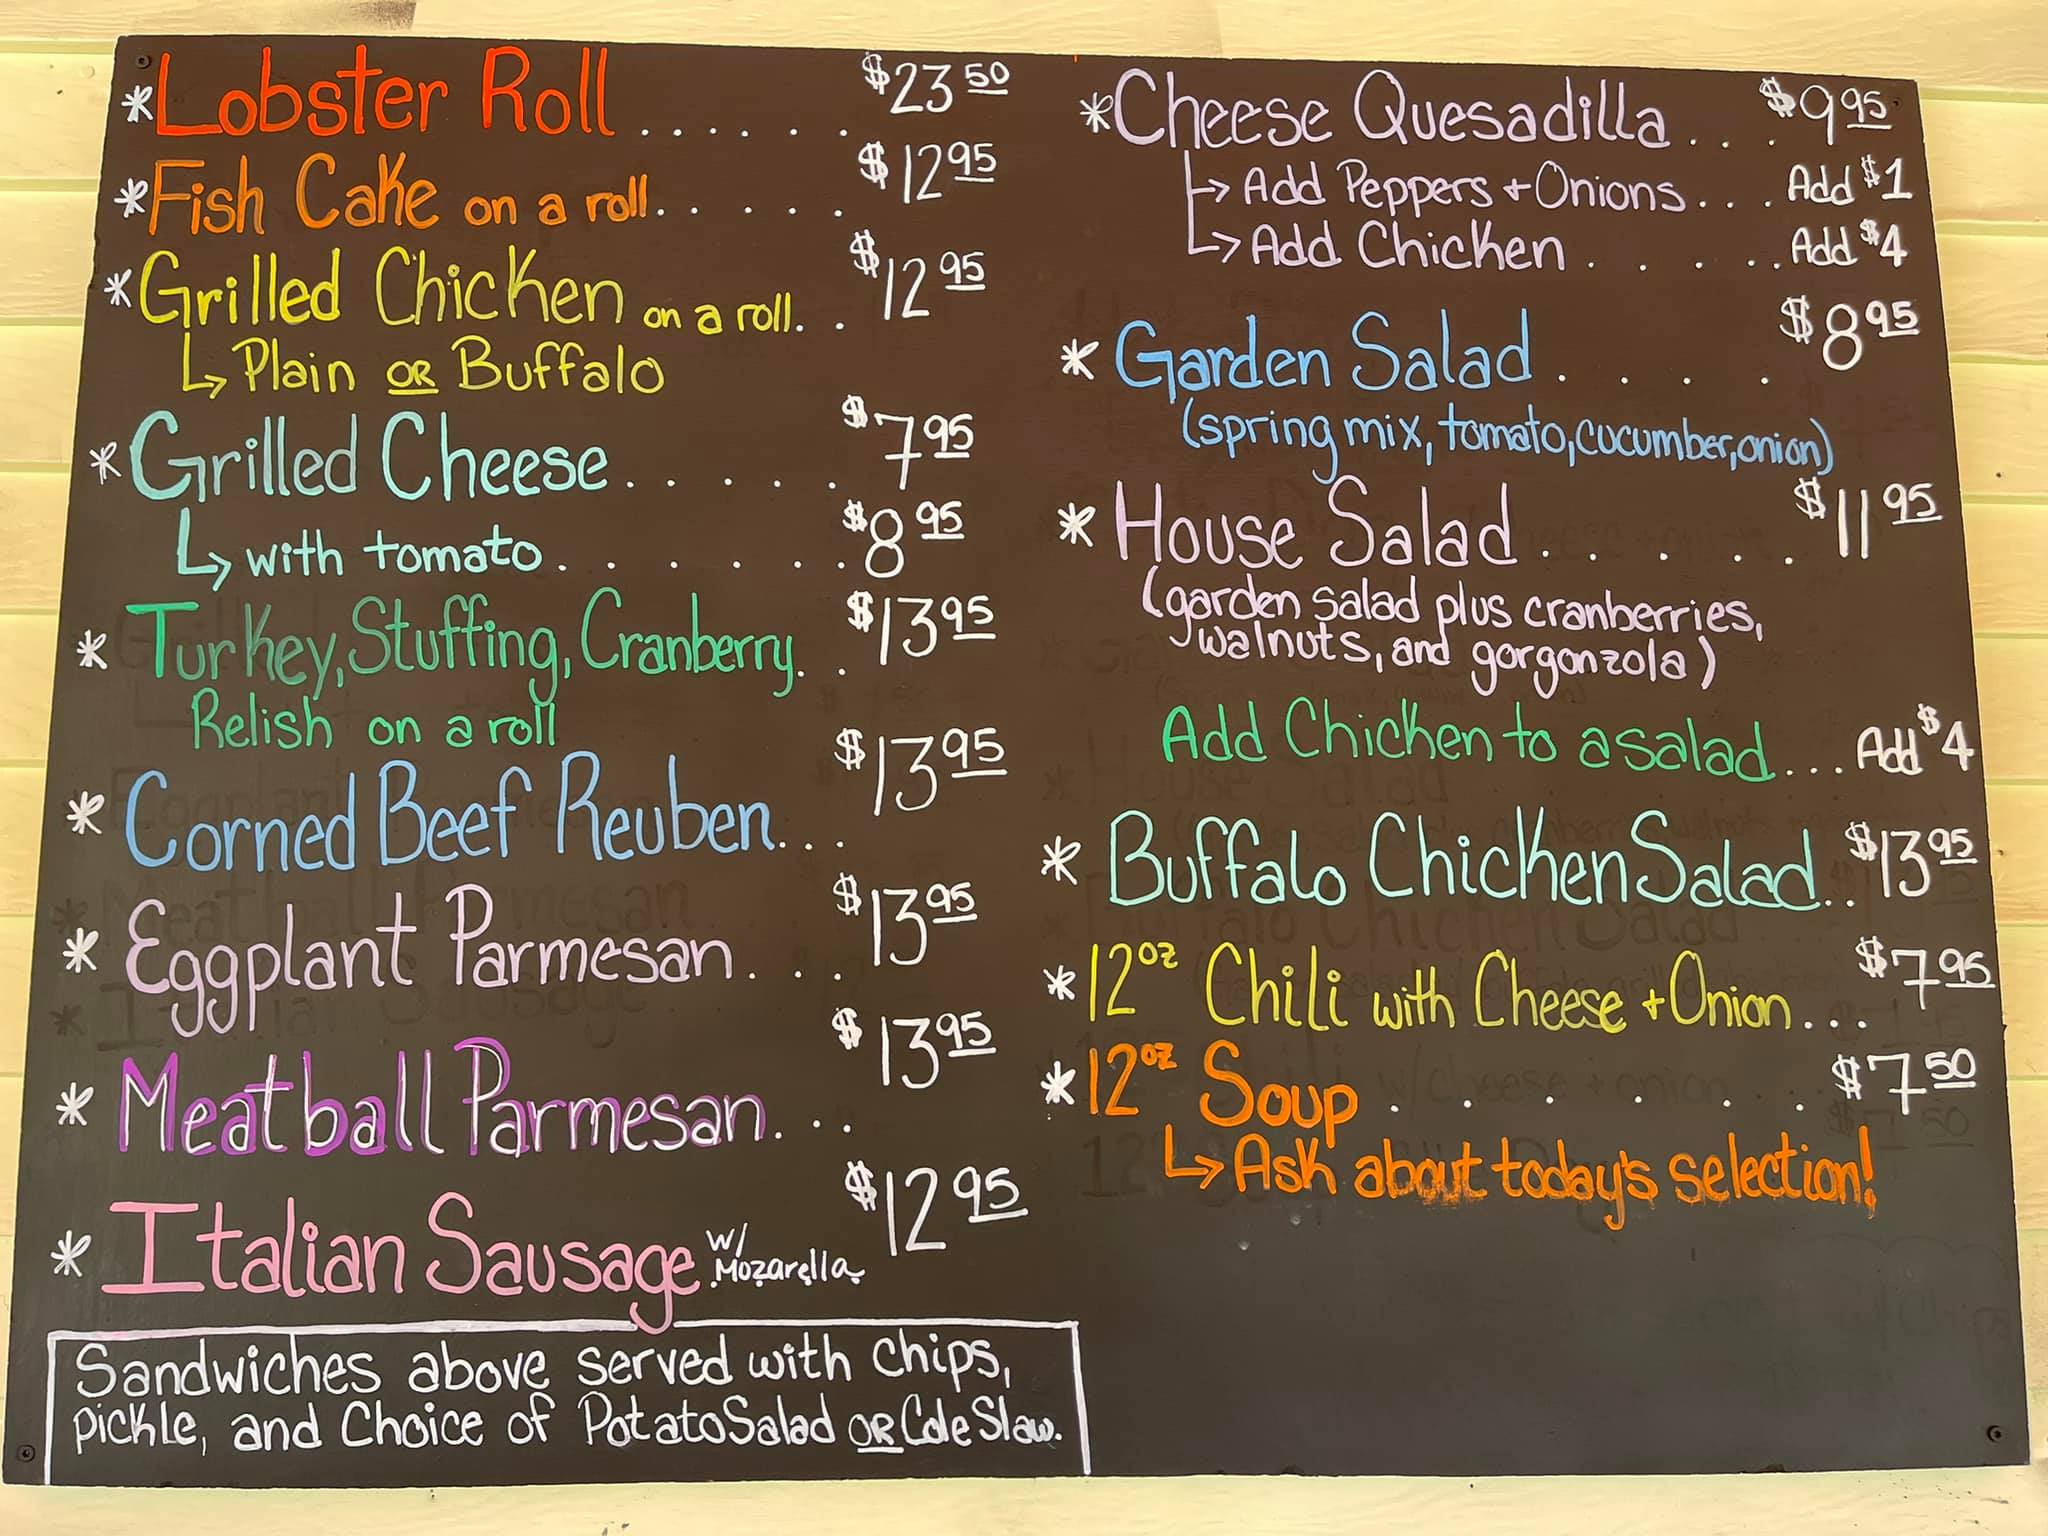 *Lobster Roll...... $23 50
*Fish Cake on a roll..... $12 95
*Grilled Chicken on a roll.. $12 95
↳ Plain OR Buffalo
*Grilled Cheese..... $7 95
↳ with tomato....... $8 95
* Turkey, Stuffing, Cranberry.. $13 95
Relish on a roll
* Corned Beef Reuben... $13 95
* Eggplant Parmesan... $13 95
* Meatball Parmesan... $13 95
* Italian Sausage w/ Mozarella $12 95
Sandwiches above served with chips,
pickle, and Choice of Potato Salad OR Cole Slaw.
*Cheese Quesadilla... $9 95
↳ Add Peppers + Onions... Add $1
↳ Add Chicken..... Add $4
* Garden Salad.... $8 95
(spring mix, tomato, cucumber, onion)
* House Salad..... $11 95
(garden salad plus cranberries,
walnuts, and gorgonzola)
Add Chicken to a salad... Add $4
* Buffalo Chicken Salad.. $13 95
*12oz Chili with Cheese + Onion... $7 95
*12oz Soup...... $7 50
↳ Ask about today's selection!